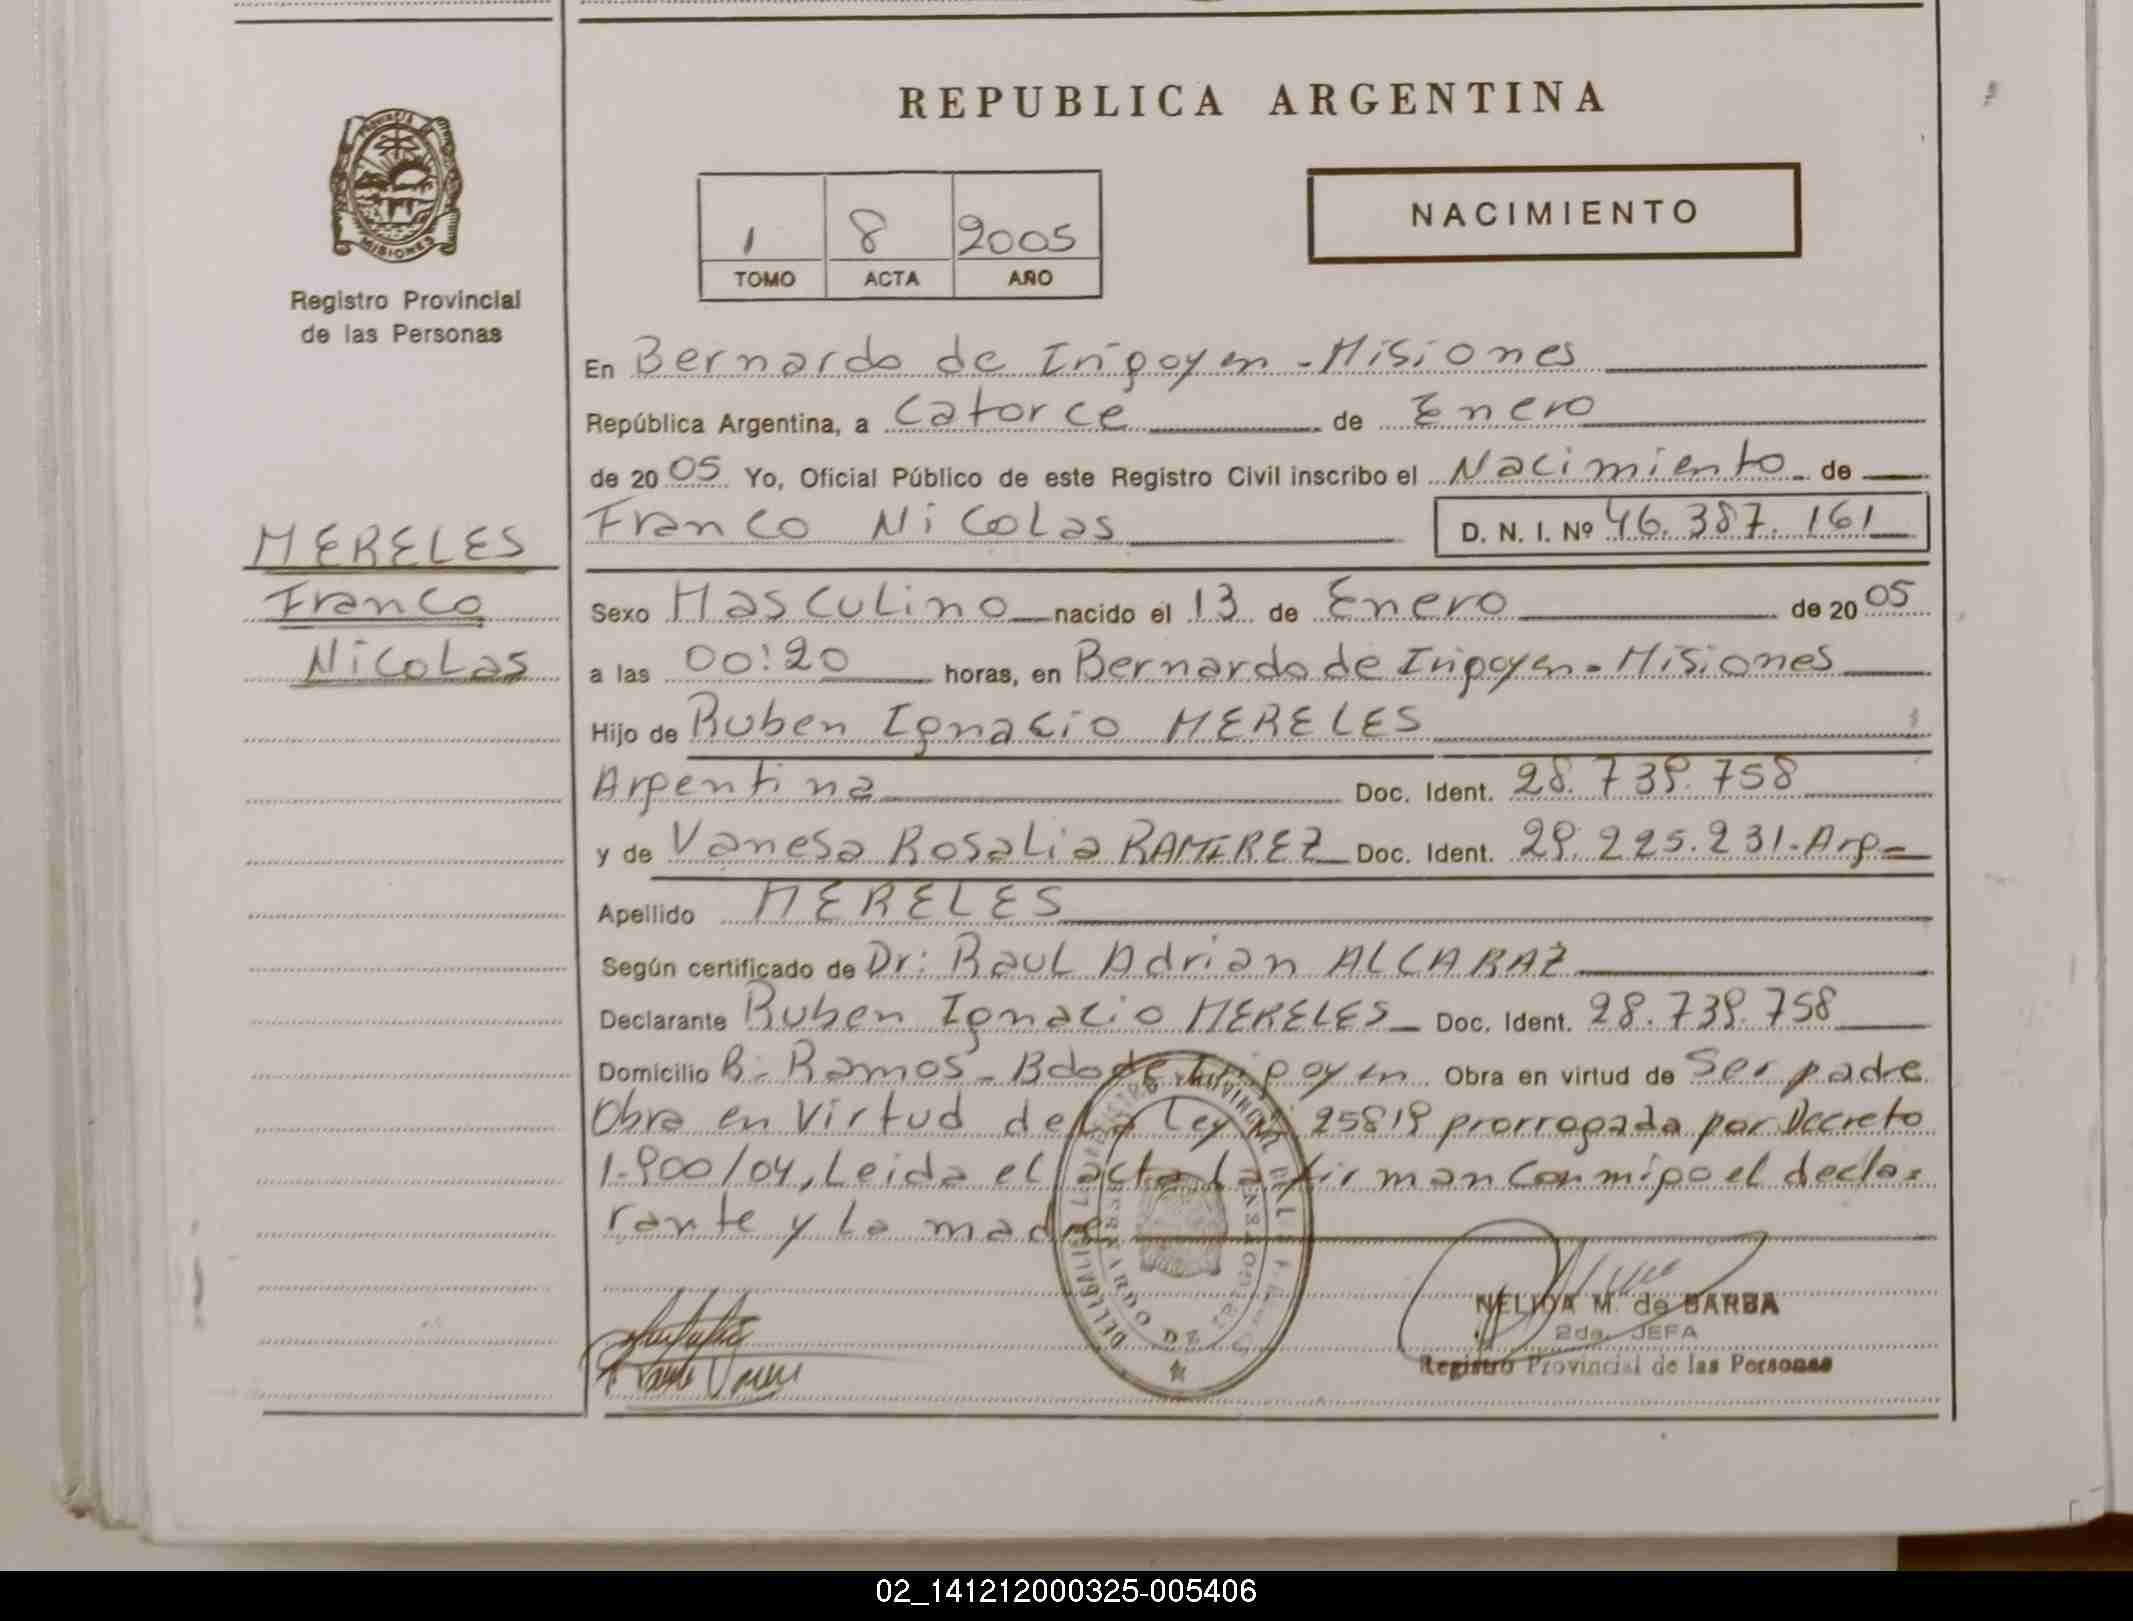 REPUBLICA ARGENTINA
PROVINCIA DE
MISIONES
Registro Provincial
de las Personas
1 8 2005
TOMO ACTA AÑO
NACIMIENTO
En Bernardo de Irigoyen - Misiones
República Argentina, a Catorce de Enero
de 2005 Yo, Oficial Público de este Registro Civil inscribo el Nacimiento de
Franco Nicolas D. N. I. Nº 46.387.161
MERELES
Franco
Nicolas
Sexo Masculino nacido el 13 de Enero de 2005
a las 00:20 horas, en Bernardo de Irigoyen - Misiones
Hijo de Ruben Ignacio MERELES
Argentina Doc. Ident. 28.739.758
y de Vanesa Rosalia RAMIREZ Doc. Ident. 29.225.231.Arg
Apellido MERELES
Según certificado de Dr: Raul Adrian ALCARAZ
Declarante Ruben Ignacio MERELES Doc. Ident. 28.739.758
Domicilio B- Ramos - Bdo de Irigoyen Obra en virtud de Ser padre
Obra en Virtud de la Ley Nº 25819 prorrogada por Decreto
1.900/04, Leida el acta la firman conmigo el decla-
rante y la madre
NELIDA M. de BARBA
2da. JEFA
Registro Provincial de las Personas
BERNARDO DE IRIGOYEN
02_141212000325-005406